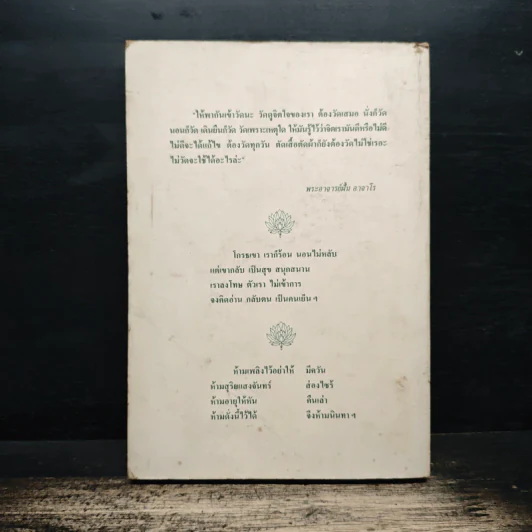 "ให้พากันเข้าวัดนะ วัดดูจิตใจของเรา ต้องวัดเสมอ นั่งก็วัด
นอนก็วัด เดินยืนก็วัด วัดเพราะเหตุใด ให้มันรู้ไว้ว่าจิตเรามันดีหรือไม่ดี
ไม่ดีจะได้แก้ไข ต้องวัดทุกวัน ตัดเสื้อตัดผ้าก็ยังต้องวัดไม่ใช่เรอะ
ไม่วัดจะใช้ได้อะไรล่ะ"
พระอาจารย์ฝั้น อาจาโร
โกรธเขา เราก็ร้อน นอนไม่หลับ
แต่เขากลับ เป็นสุข สนุกสนาน
เราลงโทษ ตัวเรา ไม่เข้าการ
จงคิดอ่าน กลับตน เป็นคนเย็น ฯ
ห้ามเพลิงไว้อย่าให้ มีควัน
ห้ามสุริยแสงจันทร์ ส่องไซร้
ห้ามอายุให้หัน คืนเล่า
ห้ามดั่งนี้ไว้ได้ จึงห้ามนินทา ฯ